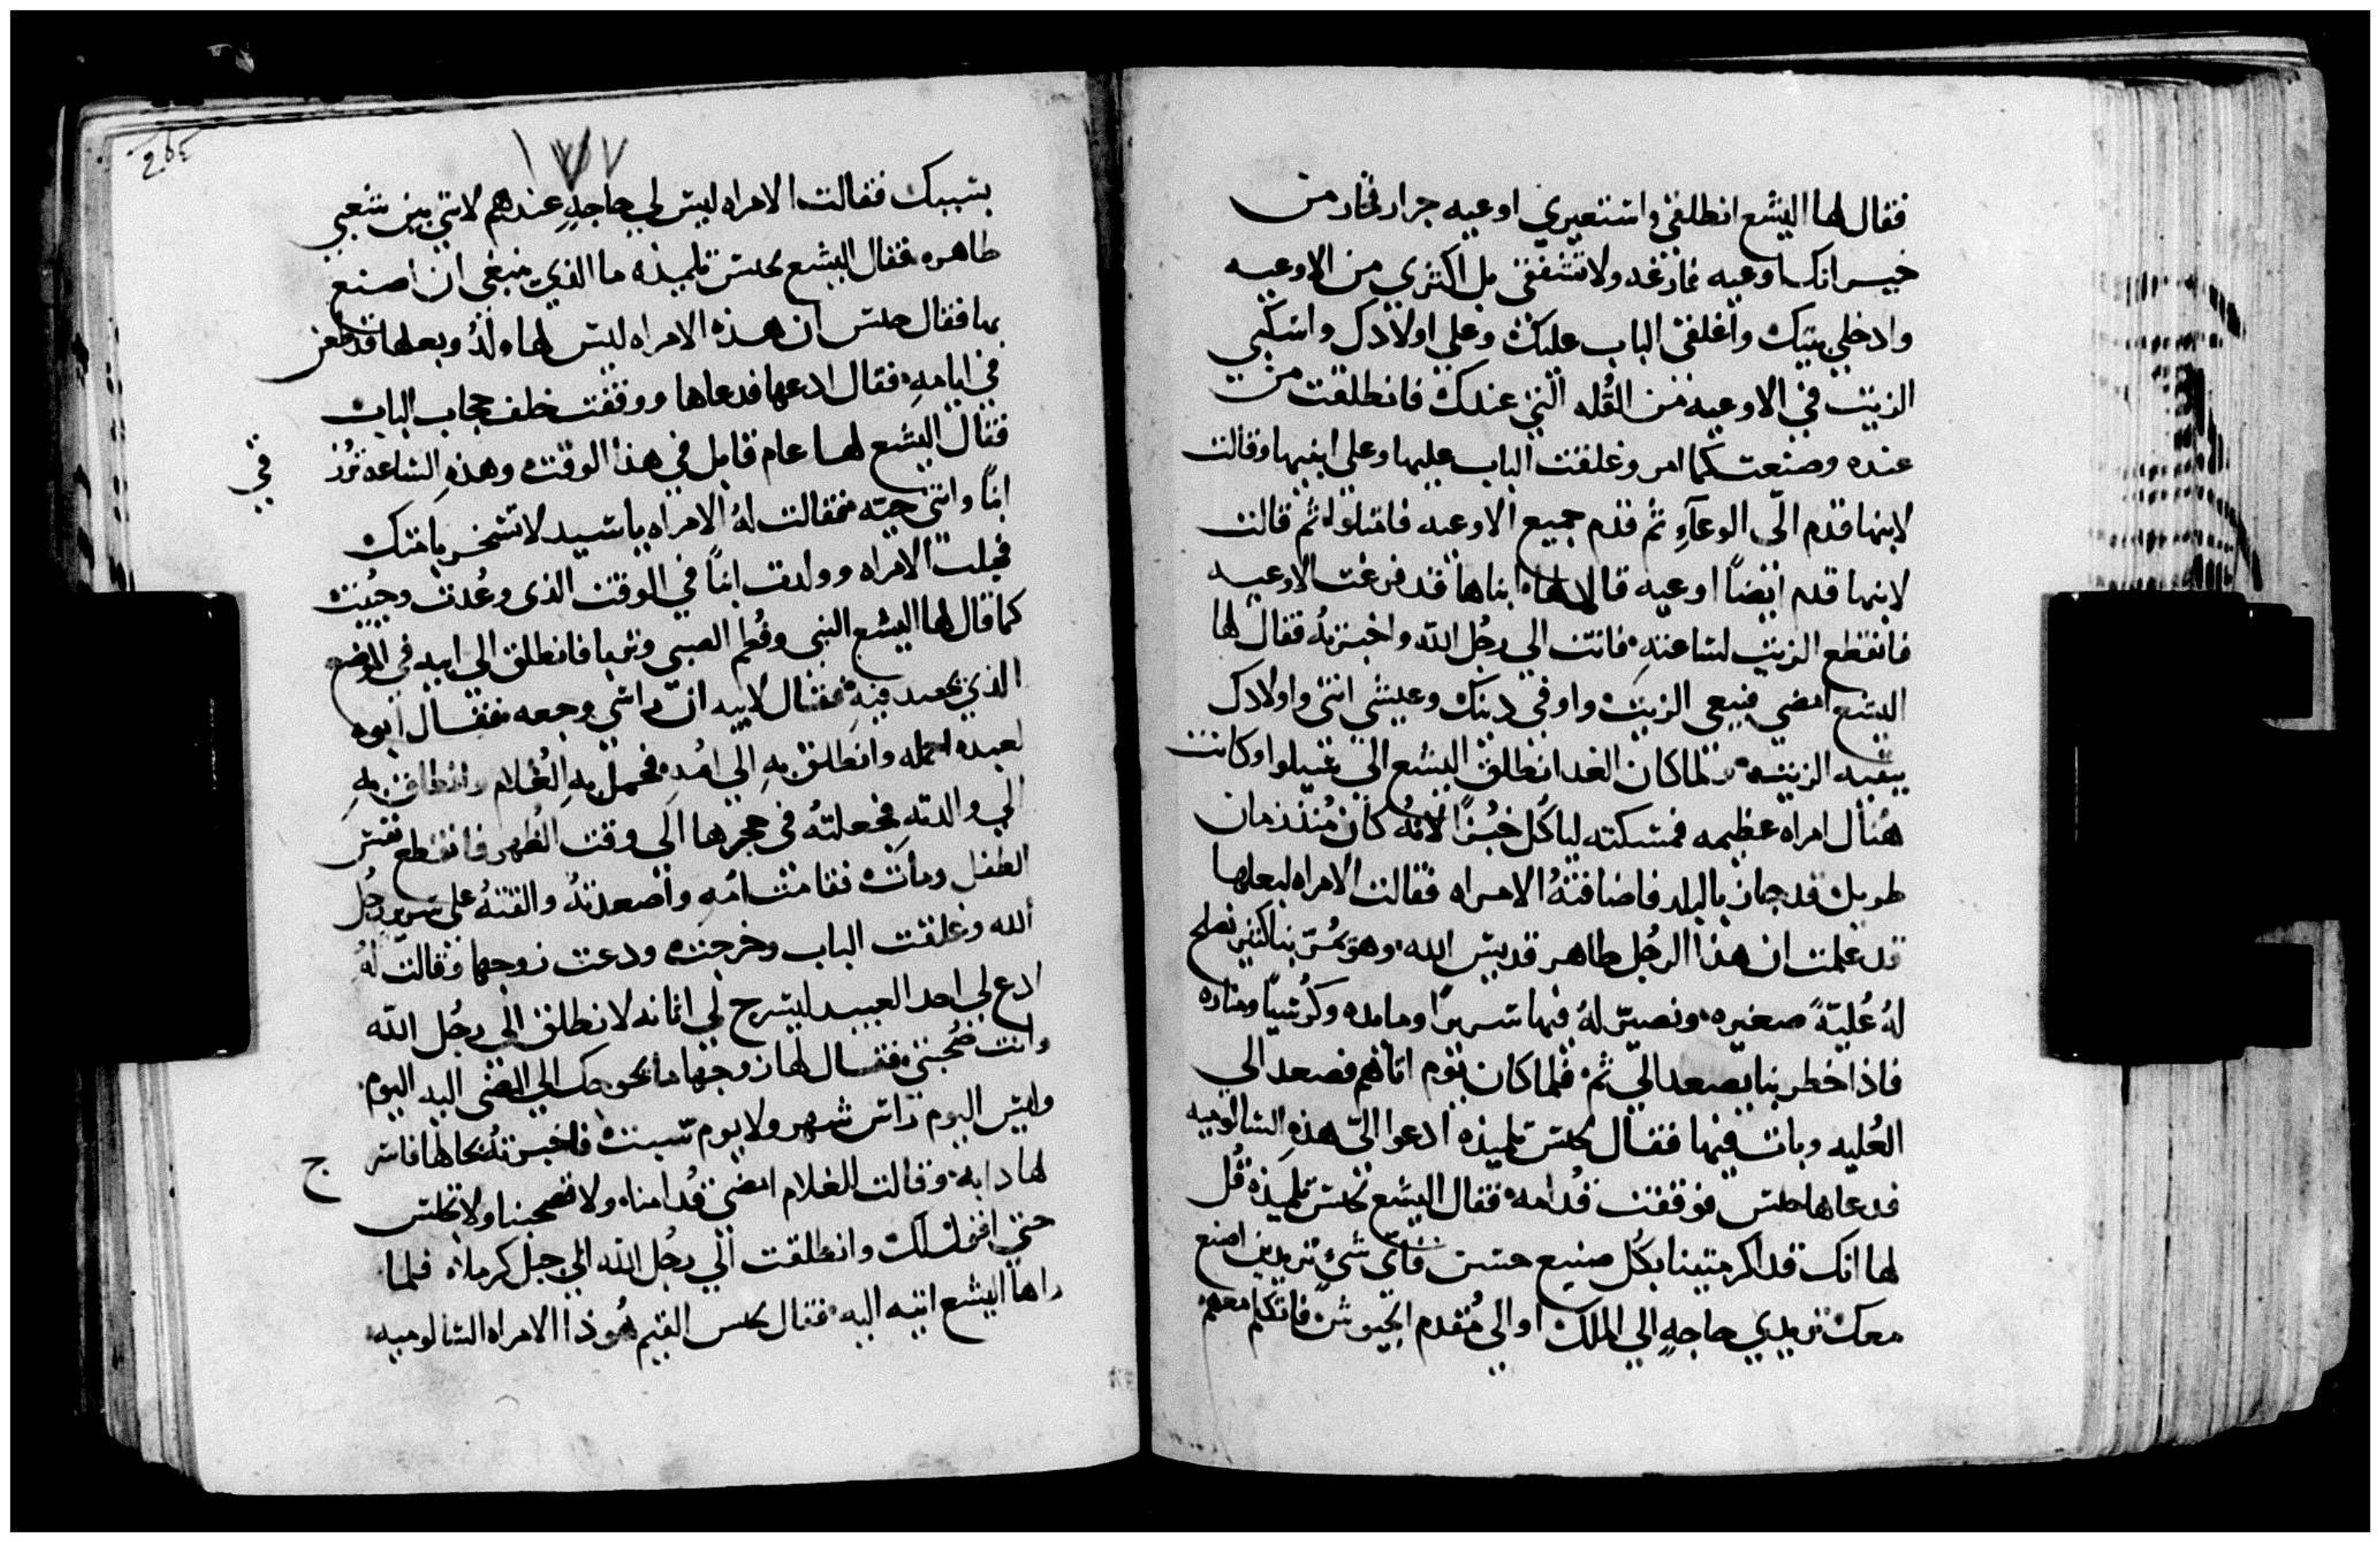 فقال لها اليشع انطلقي واستعيري اوعيه جرار فخار من
جيرانك اوعيه فارغه ولا تشفقي بل اكثري من الاوعيه
وادخلي بيتك واغلقي الباب عليك وعلي اولادك واسكبي
الزيت في الاوعيه من القُله التي عندك فانطلقت من
عنده وصنعت كما امر وغلقت الباب عليها وعلي ابنيها وقالت
لابنها قدم الّى الوعآءِ ثم قدم جميع الاوعيه فامتلوا ثم قالت
لابنها قدم ايضاً اوعيه قالا لها ابناها قد فرغت الاوعيه
فانقطع الزيت لساعته فاتت الي رجُل الله واخبرتهُ فقال لها
اليشع امضي فبيعي الزيت واوفي دينك وعيشي انتي واولادك
ببقيه الزيت فلما كان الغد انطلق اليشع الي شيلوا وكانت
هُناك امراه عظيمه فمسكته لياكُل خُبزاً لانهُ كان مُنذ زمان
طويل قد جاز بالبلد فاضافتهُ الامراه فقالت الامراه لبعلها
قد علمت ان هذا الرجُل طاهر قديس الله وهو يمُر بنا كثير نصلح
لهُ عُليّةً صغيره ونصيّر لهُ فيها سريراً ومايده وكُرسياً ومناره
فاذا خطر بنا يصعد الي ثم فلما كان يوم اتاهم فصعد الي
العُليه وبات فيها فقال لجلس تلميذه ادعوا الىّ هذهِ الشالوميه
فدعاها جلس فوقفت قُدامه فقال اليشع لجلس تلميذه قُل
لها انك قد اكرمتينا بكُل صنيع حسن فاي شيء تريدين اصنع
معك تريدي حاجهٍ الي الملك او الي مُقدم الجيوش فاتكلم معهم
١٧٧
بسببك فقالت الامراه ليس لي حاجهٍ عندهم لانني بين شعبي
طاهره فقال اليشع لجلس تلميذه ما الذي ينبغي ان اصنع
بها فقال جلس ان هذه الامراه ليس لها ولدُ وبعلها قد طعن
في ايامهِ فقال ادعها فدعاها ووقفت خلف حجاب الباب
فقال اليشع لها عام قابل في هذا الوقت وهذهِ الساعه تُرز
في
ابناً وانتي حيّه فقالت لهُ الامراه يا سيد لا تسخر بامتك
فحبلت الامراه وولدت ابناً في الوقت الذي وعُدت وحُييت
كما قال لها اليشع النبي وفُطم الصبي وتربا فانطلق الي ابيه في الموضع
الذي يحصد فيهِ فقال لابيه ان راسي وجعه فقال ابوه
لعبده احمله وانطلق بهِ الي امهِ فحمل بهِ الغُلام وانطلق بهِ
الي والدتهِ فجعلتهُ في حجرها الى وقت الظُهر فانقطع نفس
الطفل ومات فقامت امُه واصعدتهُ والقتهُ علي سرير رجُل
الله وغلقت الباب وخرجت ودعت زوجها وقالت لهُ
ادع لي احد العبيد ليسرج لي اتانه لانطلق الي رجُل الله
وانت صُحبتي فقال لها زوجها ما يحوجك الي المضي اليه اليوم
وليس اليوم راس شهر ولا يوم سبت فاخبرتهُ بحالها فاسر
ج
لها دابه وقالت للغلام امضي قُدامنا ولا تصحبنا ولا تجلس
حتي اقول لك وانطلقت الي رجُل الله الي جبل كرملاه فلما
راها اليشع اتيه اليه فقال لجلس القيم هُوذا الامراه الشالوميه